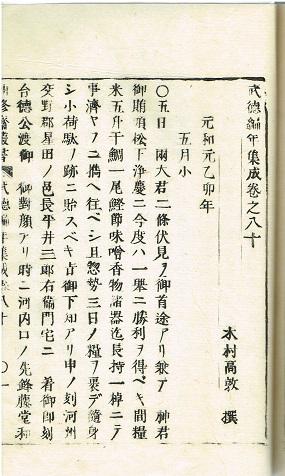 武德編年集成卷之八十
木村高敦 撰
元和元乙卯年
五月小
〇五日 兩大君二條伏見ヲ御首途アリ兼テ 神君
御賄頭松下淨慶ニ今度ハ一擧ニ勝利ヲ得ベキ間糧
米五升干鯛一尾鰹節味噌香物諸器迄長持一棹ニテ
事濟ヤウニ携ヘ往ベシ且惣勢三日ノ糧ヲ裹デ隨身
シ小荷駄ノ跡ニ貽スベキ旨御下知アリ申ノ刻河州
交野郡星田ノ邑長平井三郎右衞門宅ニ 着御卽刻
台德公渡御 御對顏アリ時ニ河内口ノ先鋒藤堂和
武德編年集成八十